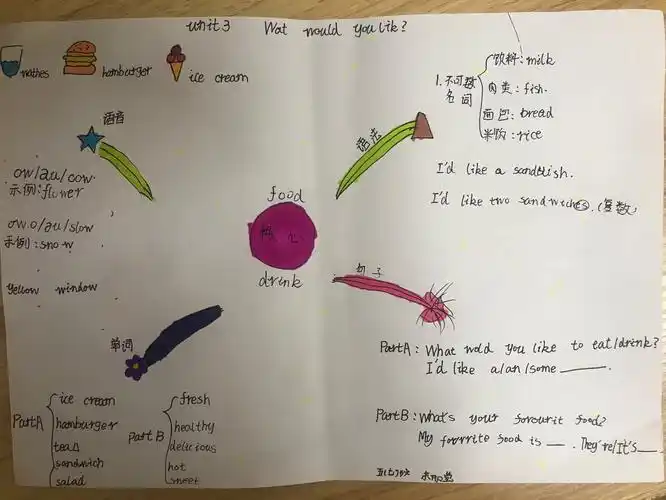 unit 3 Wat would you like?
hamburger
ice cream
语音
ow/au/cow.
示例:flower
ow.o/au/slow
示例:snow
yellow window
语法
1.不可数名词
饮料:milk
肉类:fish.
面包:bread
米饭:rice
I'd like a sandwish.
I'd like two sandwiches.(复数)
food
核心
drink
句子
PartA: What would you like to eat/drink?
I'd like a/an/some ______.
PartB: What's your favourit food?
My favorite food is ___. They're/It's ___.
单词
PartA
ice cream
hamburger
tea
sandwich
salad
Part B
fresh
healthy
delicious
hot
sweet